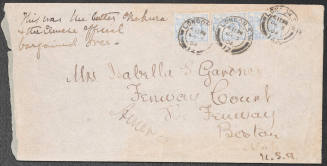 This was the letter Okakura
& the Chinese official
bargained over.
LONDON
Mrs Isabella S. Gardner
Fenway Court
The Fenway
Boston
U.S.A.